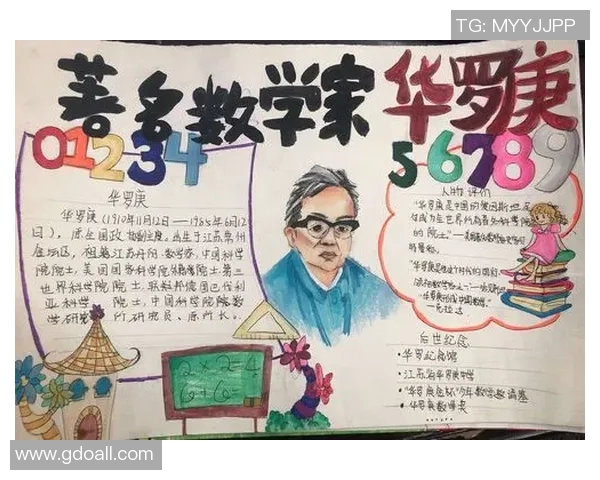 TG: MYYJJPP
著名数学家 华罗庚
01234
56789
华罗庚
华罗庚（1910年11月12日——1985年6月12
日），原全国政协副主席。出生于江苏常州
金坛区，祖籍江苏丹阳。数学家，中国科学
院院士，美国国家科学院外籍院士，第三
世界科学院院士，联邦德国巴伐利
亚科学院院士，中国科学院
学研究所研究员、原所长。
2×2=4
6+6=
人物评价
"华罗庚是中国的爱因斯坦，足
够成为全世界所有著名科学院
的院士。"
后世纪念
·华罗庚纪念馆
·江苏省华罗庚中学
·"华罗庚金杯"少年数学邀请赛
·华罗庚数学奖
www.gdoall.com